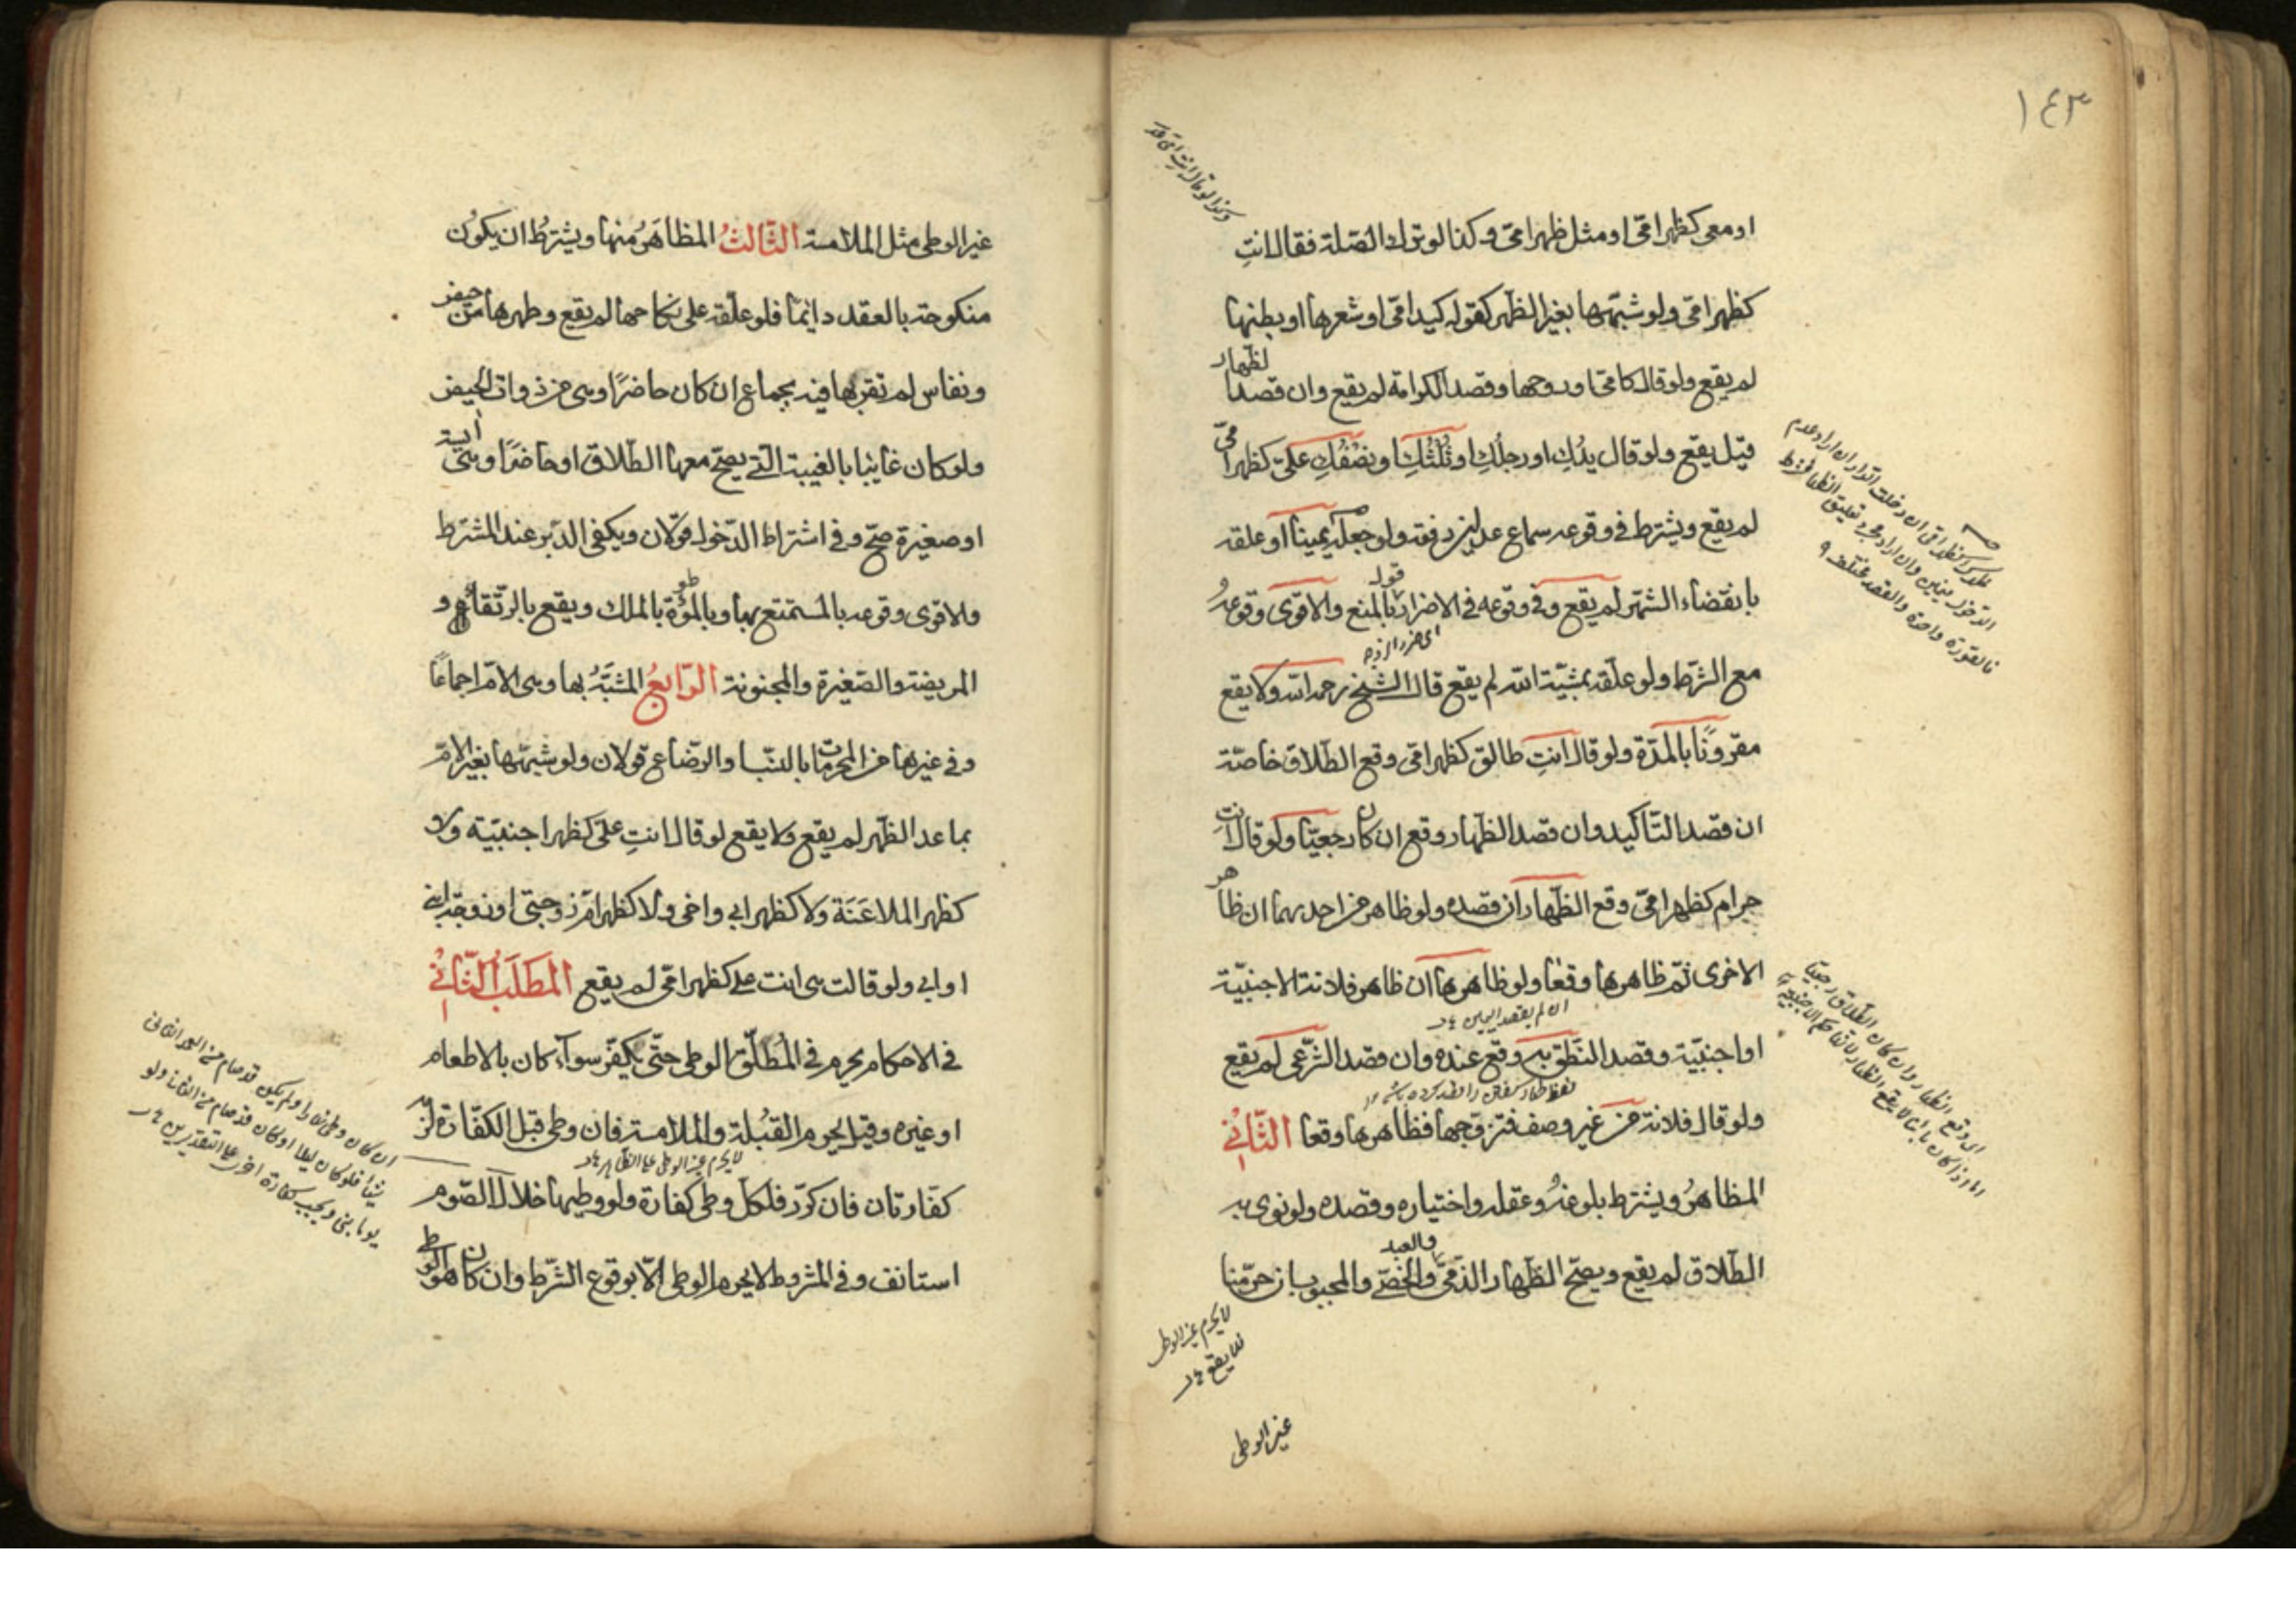 ١٤٣
او معي كظهر امّي او مثل ظهر امّي وكذا لو ترك الصّلة فقال انتِ
كظهر امّي ولو شبّهها بغير الظّهر كقوله كيد امّي او شعرها او بطنها
لم يقع ولو قال كامّي او روحها وقصد الكرامة لم يقع وان قصد الظّهار
قيل يقع ولو قال يدُكِ او رجلُكِ او ثُلُثُكِ او نصْفُكِ عليّ كظهر امّي
لم يقع ويشترط في وقوعه سماع عدلين دفعة ولو جعله يمينًا او علقه
بانقضاء الشهر لم يقع وفي وقوعه في الاضرار قولٌ بالمنع والاقوى وقوعهُ
مع الشّرط ولو علّقه بمشيّة الله لم يقع قال الشيخ رحمه الله ولا يقع
مقرونًا بالمدّة ولو قال انتِ طالق كظهر امّي وقع الطّلاق خاصّة
ان قصد التّاكيد وان قصد الظّهار وقع ان كان رجعيّا ولو قال انتِ
حرام كظهر امّي وقع الظّهار ان قصده ولو ظاهر من احديهما ان ظاهر
الاخرى ثمّ ظاهرها وقعا ولو ظاهرها ان ظاهر فلانة الاجنبيّة
ان لم يقصد اليمين
او اجنبيّة وقصد النّطق به وقع عنده وان قصد الشّرعي لم يقع
ولو قال فلانة من غير وصف فتزوّجها فظاهرها وقعا الثّاني
المظاهرُ ويشترط بلوغهُ وعقله واختياره وقصده ولو نوى به
الطّلاق لم يقع ويصحّ الظّهار الذّميّ والعبد والخصيّ والمجبوب ان حرّمنا
لا يحرم غير الوطي
فلا يقع
غير الوطي
غير الوطي مثل الملامسة الثّالثُ المظاهَرُ منها ويشترطُ ان يكون
منكوحة بالعقد دائمًا فلو علّقه على نكاحها لم يقع وطهرها من حيض
ونفاس لم تقربها فيه بجماع ان كان حاضرًا وهي من ذوات الحيض
ولو كان غايبا بالغيبة الّتي يصحّ معها الطّلاق او حاضرًا وهي آيسة
او صغيرة صحّ وفي اشتراط الدّخول قولان ويكفي الدّبر عند المشترط
والاقوى وقوعه بالمستمتع بها وبالموطوءة بالملك ويقع بالرّتقاء و
المريضة والصّغيرة والمجنونة الرّابعُ المشبَّهُ بها وهي الامّ اجماعًا
وفي غيرها من المحرمات بالنّسب او الرّضاع قولان ولو شبّهها بغير الامّ
بما عدا الظّهر لم يقع ولا يقع لو قال انتِ عليّ كظهر اجنبيّة ولا
كظهر الملاعَنَة ولا كظهر ابي واخي ولا كظهر امّ زوجتي او زوجة ابني
او ابي ولو قالت هي انت علي كظهر امّي لم يقع المَطلَبُ الثّاني
في الاحكام يحرم في المُطلَق الوطي حتّى يكفّر سواء كان بالاطعام
او غيره وقيل يحرم القُبلة والملامسة فان وطي قبل الكفّارة لزمه
لا يحرم غير الوطي على الظّاهر
كفّارتان فان كرّر فلكلّ وطي كفّارة ولو وطيها خلال الصّوم
استانف وفي المشروط لا يحرم الوطي الّا بوقوع الشّرط وان كان هو الوطي